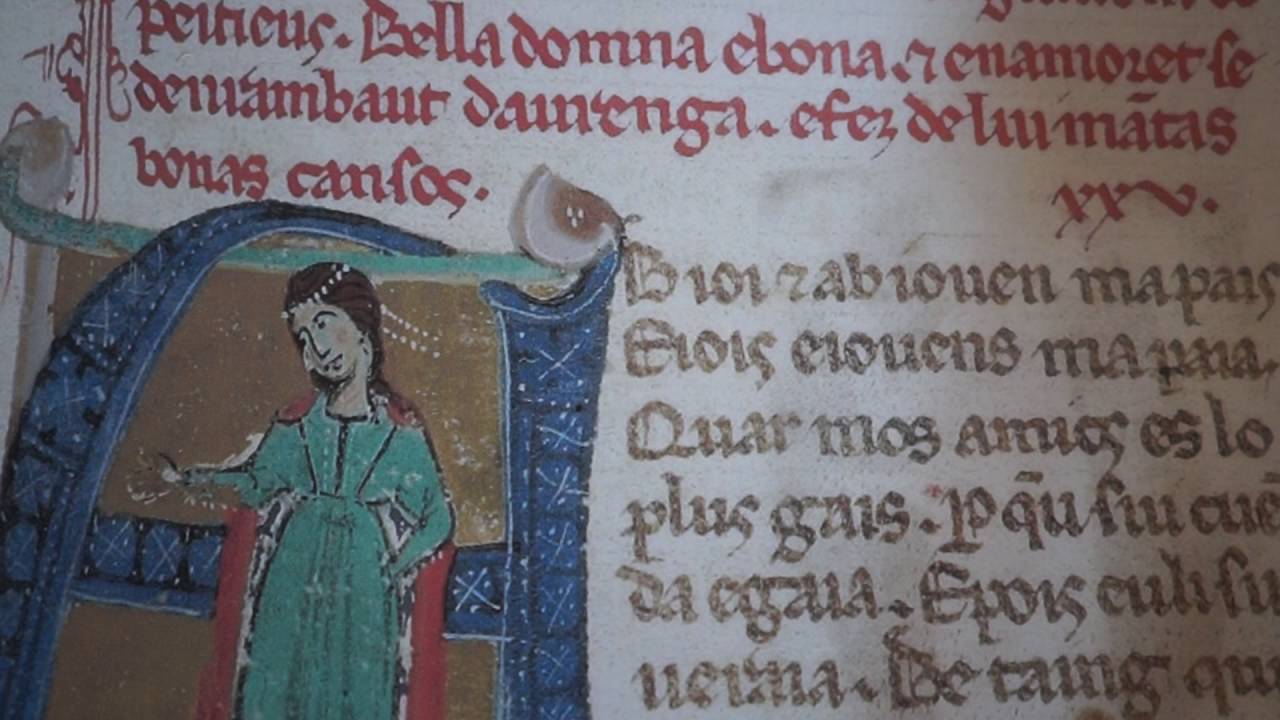 peitieus. Bella domna ebona. ⁊ enamoret se
denrambaut daurenga. efez deliu mātas
bonas cansos.
xxv.
B ioi ⁊ ab iouen mapais
E iois eiouens ma paia.
Quar mos amics es lo
plus gais. P q̄u siu cuē
da egaia. E pois eu li su
ueraia. Be taing qu